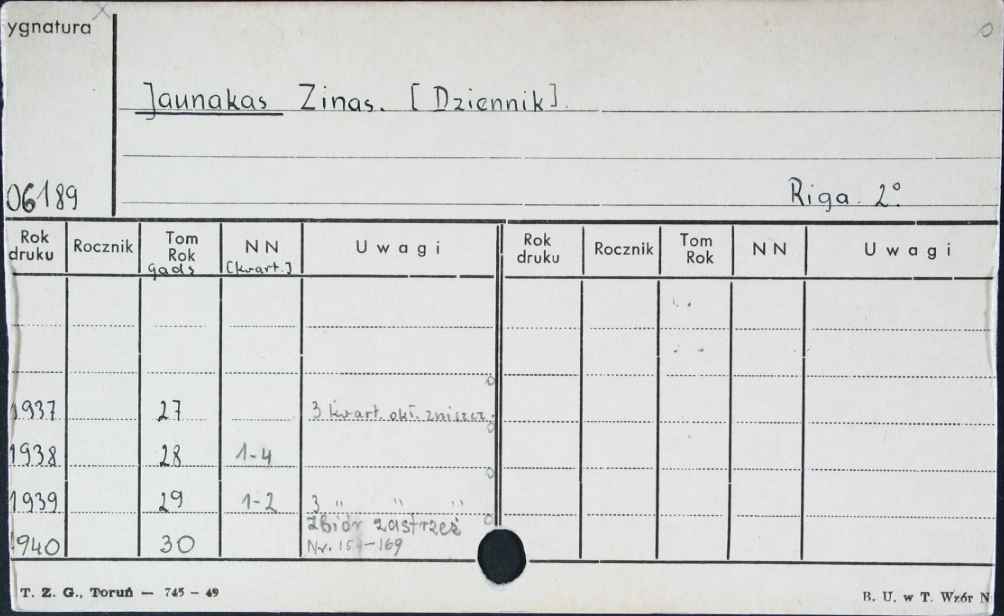 ygnatura
Jaunakas Zinas. [Dziennik].
06189
Riga 2°
Rok druku Rocznik Tom Rok NN Uwagi Rok druku Rocznik Tom Rok NN Uwagi
gads [kwart.]
1937 27 3 kwart. okł. zniszcz.
1938 28 1-4
1939 29 1-2 3 " " "
Zbiór zastrzeż
1940 30 Nr. -169
T. Z. G., Toruń — 745 - 49
B. U. w T. Wzór N